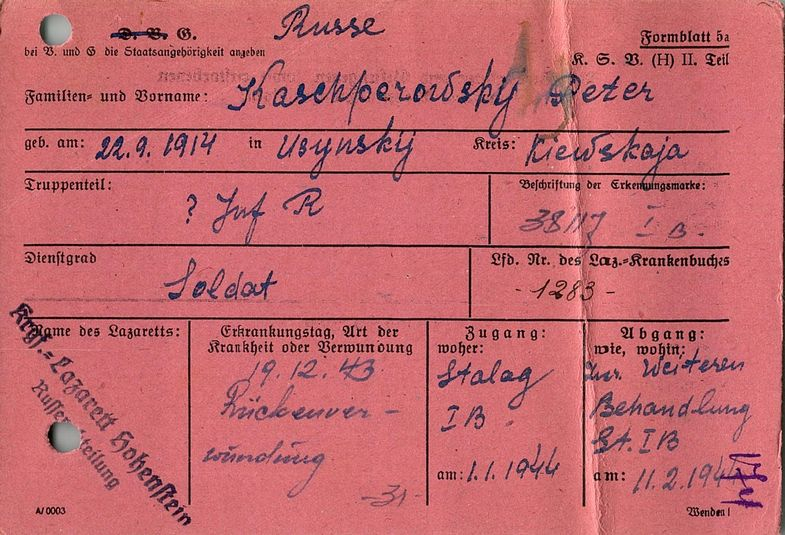 D. V. G. Russe
bei V. und G die Staatsangehörigkeit angeben
Formblatt 5a
K. S. V. (H) II. Teil
Familien- und Vorname: Kaschperowsky Peter
geb. am: 22.9.1914 in Usynsky Kreis: Kiewskaja
Truppenteil:
? Inf R
Beschriftung der Erkennungsmarke:
38117 I B.
Dienstgrad
Soldat
Lfd. Nr. des Laz.-Krankenbuches
- 1283 -
Name des Lazaretts:
Krgf.-Lazarett Hohenstein
Russenabteilung
Erkrankungstag, Art der
Krankheit oder Verwundung
19.12.43
Rückenver-
wundung
-31-
Zugang:
woher:
Stalag
I B
am: 1.1.1944
Abgang:
wie, wohin:
zur Weiteren
Behandlung
St. I B
am: 11.2.1944
A/0003
Wenden!